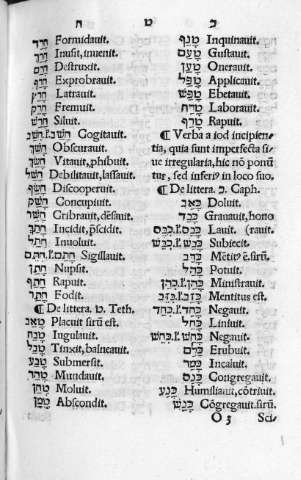 כ ט ח
חָרַד Formidauit.
Inusit, inuenit.
Destruxit.
חָרַף Exprobrauit.
חָרַץ Latrauit.
חָרַק Fremuit.
חָרַשׁ Siluit.
Cogitauit.
חָשַׁךְ Obscurauit.
חָשַׂךְ Vitauit, phibuit.
חָלַשׁ Debilitauit, lassauit.
חָשַׂף Discooperuit.
חָשַׁק Concupiuit.
חָשַׁר Cribrauit, dēsauit.
חָתַךְ Incidit, pscidit.
חָתַל Inuoluit.
Sigillauit.
חָתַן Nupsit.
חָתַף Rapuit.
חָתַר Fodit.
¶ De littera. ט. Teth.
טָאַב Placuit sirū est.
טָבַח Iugulauit.
טָבַל Tinxit, balneauit.
טָבַע Submersit.
טָהַר Mundauit.
טָחַן Moluit.
טָמַן Abscondit.
טָנַף Inquinauit.
טָעַם Gustauit.
טָעַן Onerauit.
טָפַל Applicauit.
טָפַשׁ Ebetauit.
טָרַח Laborauit.
טָרַף Rapuit.
¶ Verba a iod incipien
tia, quia sunt imperfecta si
ue irregularia, hic nō ponū
tur, sed inferiꝰ in loco suo.
¶ De littera. כ. Caph.
כָּאַב Doluit.
כָּבַד Grauauit, hono
Lauit. (rauit.
Subiecit.
Mētiō ē.sirū.
Potuit.
Ministrauit.
Mentitus est.
Negauit.
כָּחַל Liniuit.
Negauit.
כָּלַם Erubuit.
כָּמַר Incaluit.
כָּנַס Congregauit.
כָּנַע Humiliauit, cōtriuit.
כָּנַשׁ Cōgregauit.sirū.
O 3 Sci-